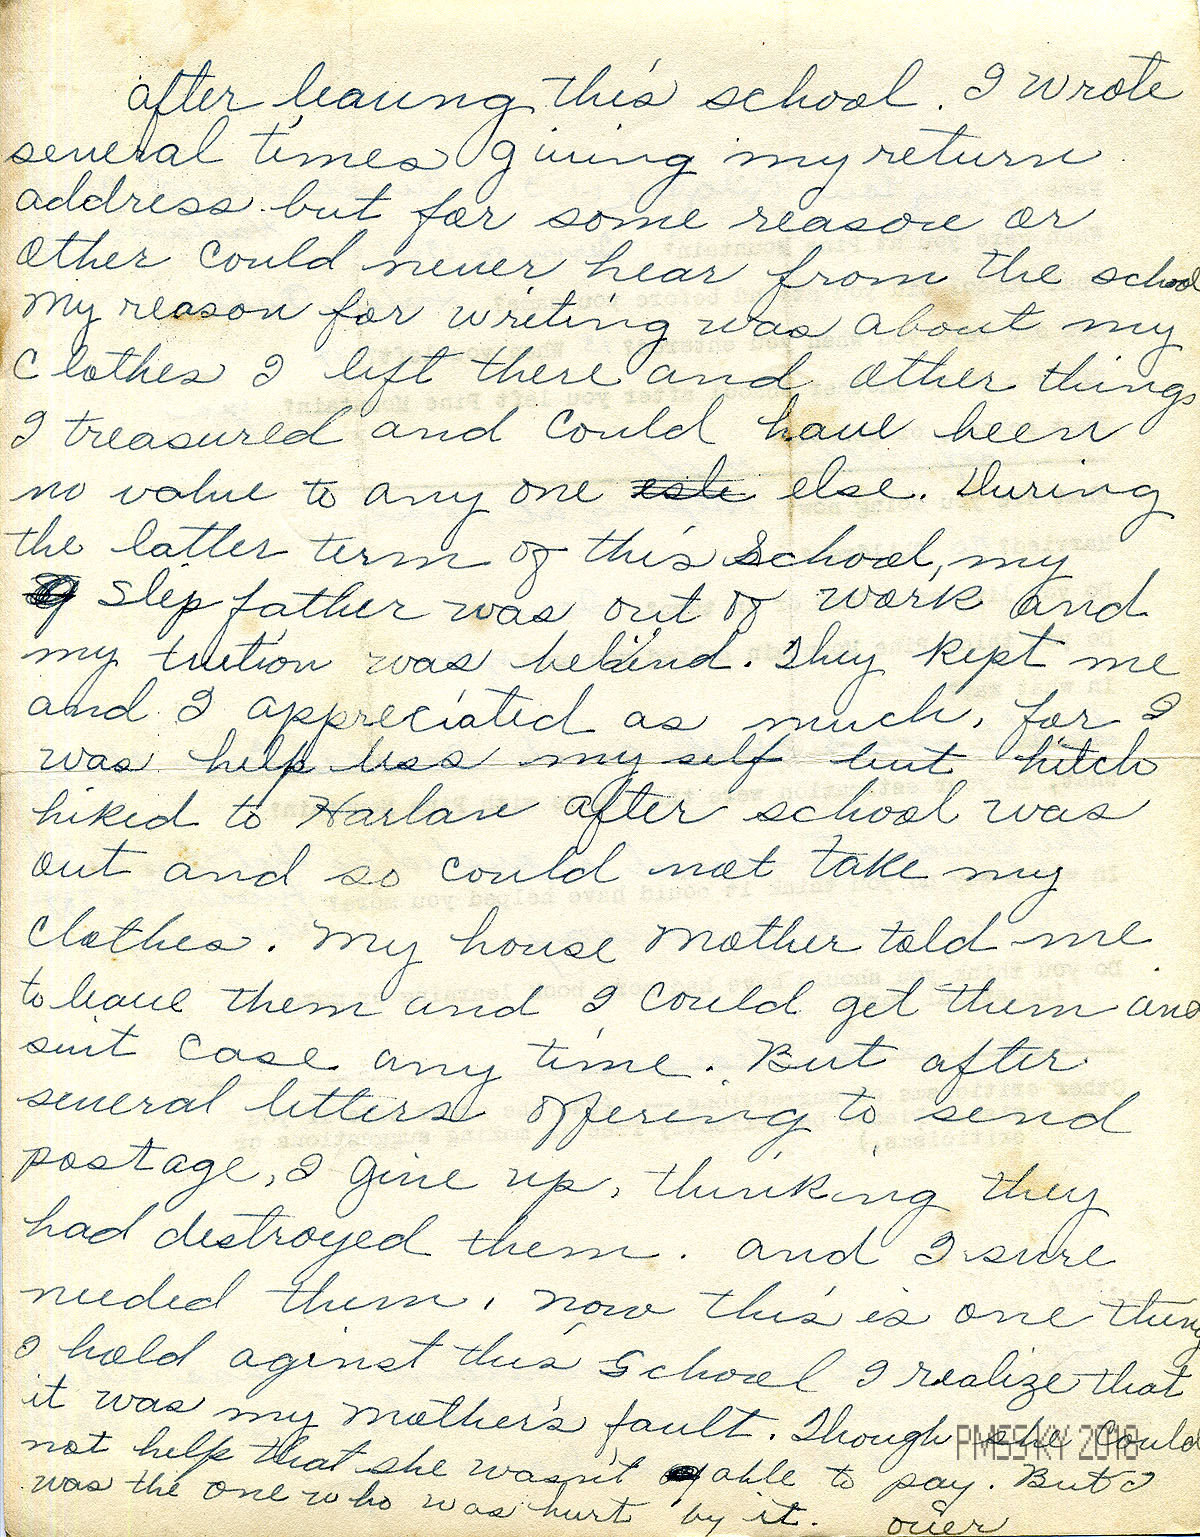 after leaving this school. I wrote
several times giving my return
address but for some reason or
other could never hear from the school
My reason for writing was about my
Clothes I left there and other things
I treasured and could have been
no value to any one esle else. During
the latter term of this School, my
step father was out of work and
my tuition was behind. They kept me
and I appreciated as much, for I
was help less my self but hitch
hiked to Harlan after school was
out and so could not take my
clothes. My house Mother told me
to leave them and I could get them and
suit case any time. But after
several letters offering to send
postage, I give up, thinking they
had destroyed them. and I sure
needed them, now this is one thing
I hold aginst this School I realize that
it was my Mother's fault. Though she Could
not help that she wasn't able to pay. But I
was the one who was hurt by it. over
PMSSKY 2018